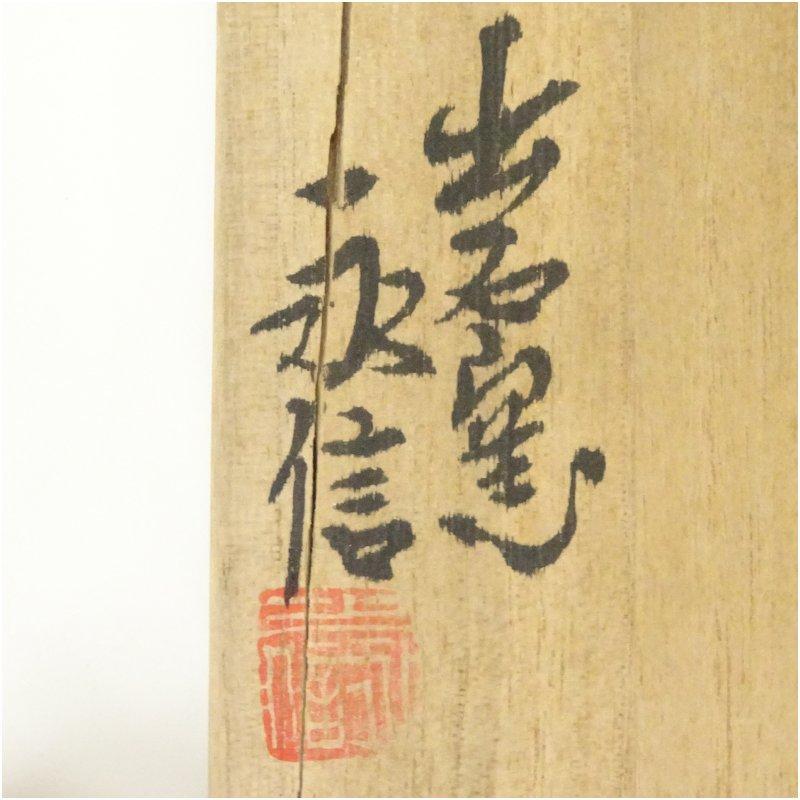 出石窯
永信